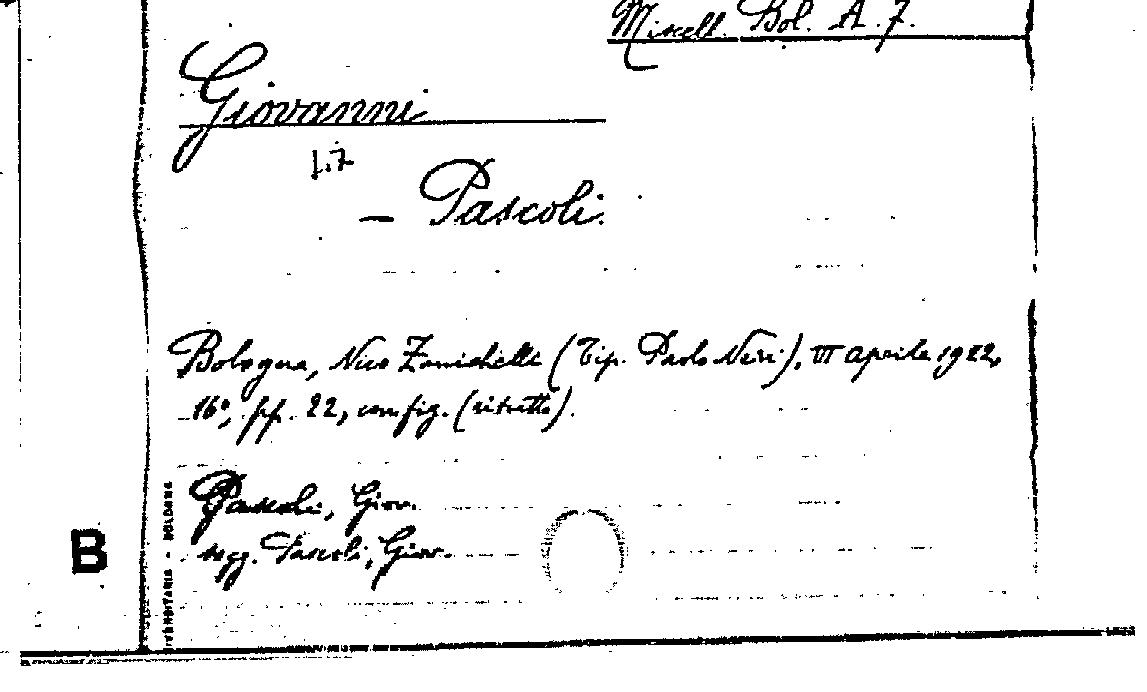 Miscell. Bol. A. 7.
Giovanni
— Pascoli.
Bologna, Nic. Zanichelli (Tip. Paolo Neri), VI aprile 1922,
16°, pp. 22, con fig. (ritratto).
Pascoli, Giov.
sogg. Pascoli, Giov.
B